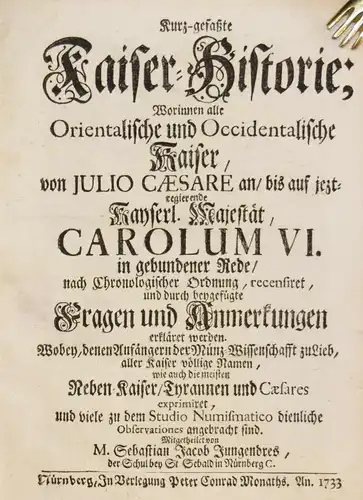 Kurz-gefaßte
Kaiser-Historie;
Worinnen alle
Orientalische und Occidentalische
Kaiser,
von JULIO CÆSARE an/ bis auf jezt-
regierende
Kayserl. Majestät,
CAROLUM VI.
in gebundener Rede/
nach Chronologischer Ordnung, recensiret,
und durch beygefügte
Fragen und Anmerkungen
erkläret werden.
Wobey, denen Anfängern der Münz-Wissenschafft zu Lieb,
aller Kaiser völlige Namen,
wie auch die meisten
Neben-Kaiser/Tyrannen und Cæsares
exprimiret,
und viele zu dem Studio Numismatico dienliche
Observationes angebracht sind.
Mitgetheilet von
M. Sebastian Jacob Jungendres,
der Schul bey St Sebald in Nürnberg C.
Nürnberg, In Verlegung Peter Conrad Monaths. An. 1733